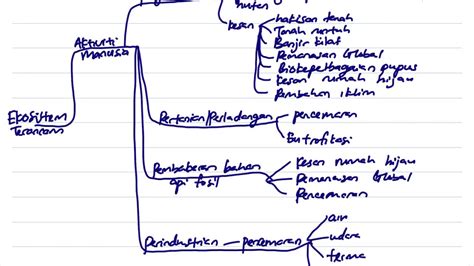 hutan
kesan
hakisan tanah
Tanah runtuh
Banjir kilat
Pemanasan Global
Biokepelbagaian pupus
Kesan rumah hijau
Perubahan iklim
Aktiviti
Manusia
Ekosistem
Terancam
Pertanian/Perladangan
pencemaran
Eutrofikasi
Pembakaran bahan
api fosil
Kesan rumah hijau
Pemanasan Global
Pencemaran
Perindustrian
pencemaran
air
udara
terma